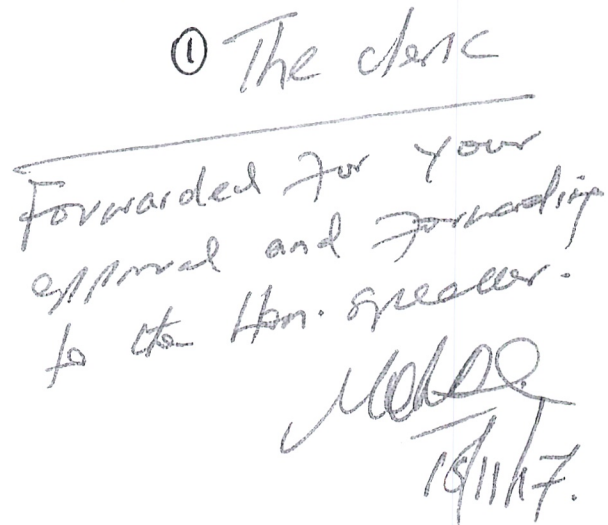 ① The clerk
Forwarded for your
approval and Forwarding
to the Hon. speaker.
15/11/17.